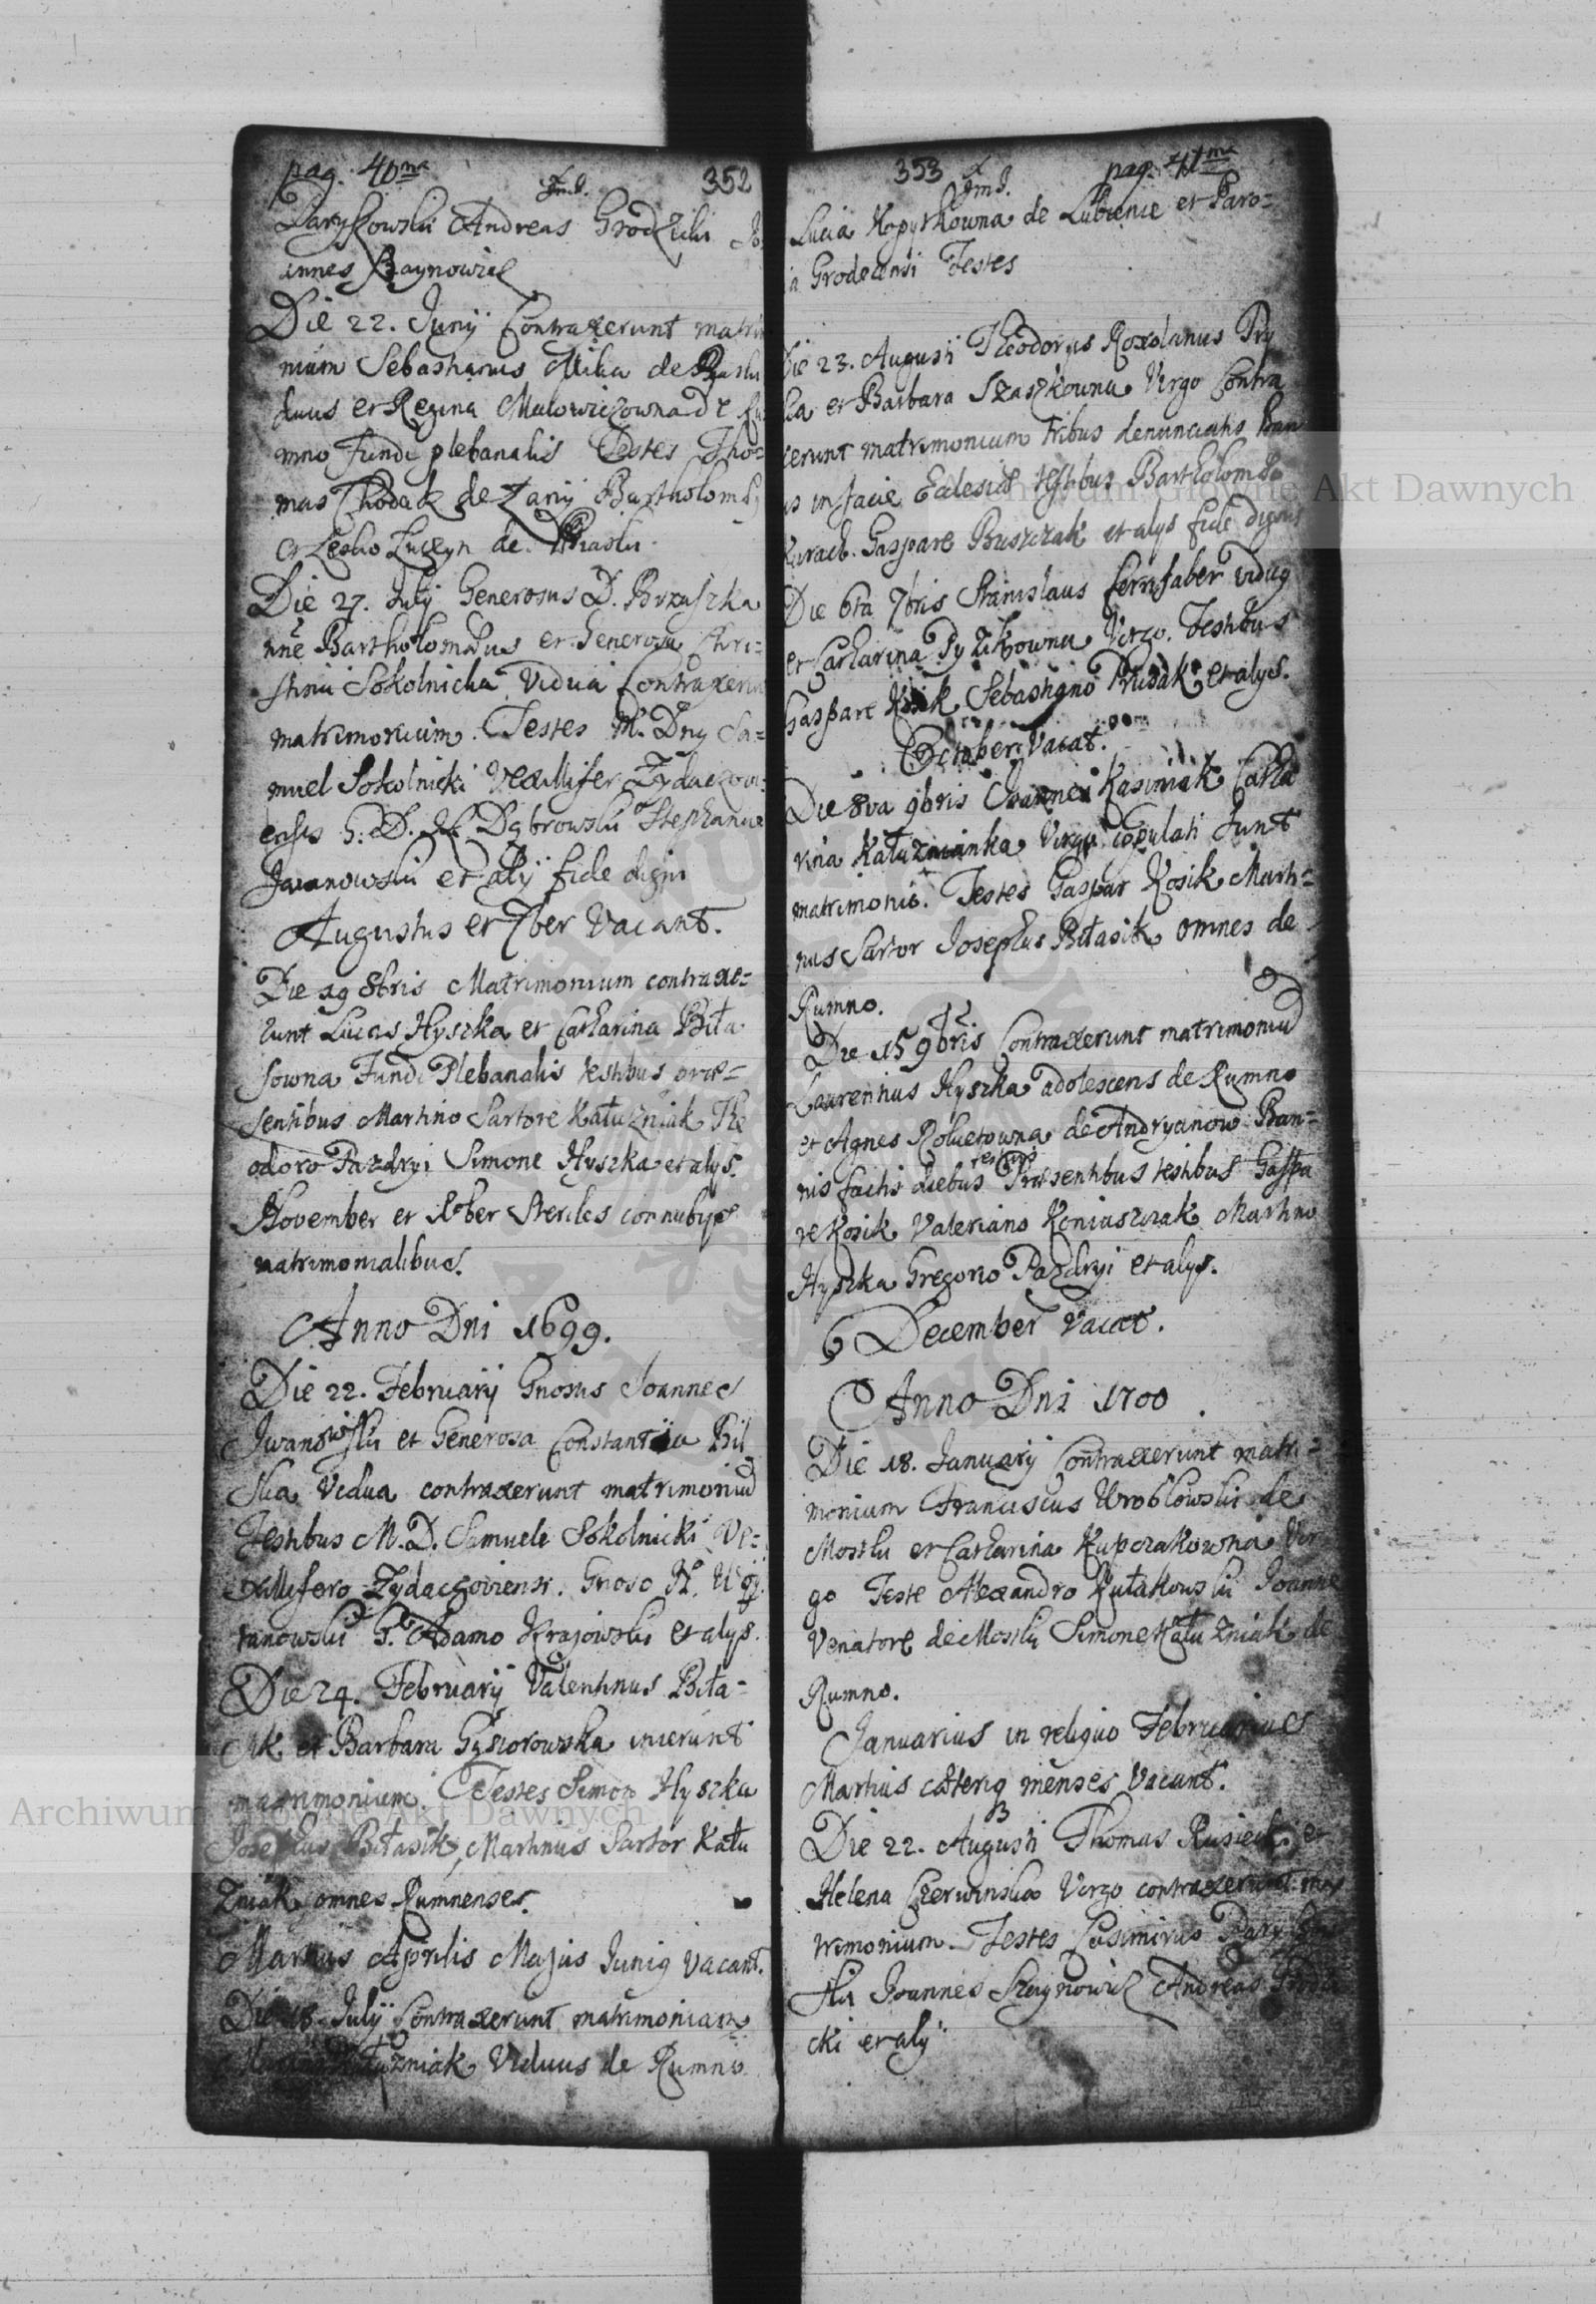 pag. 40ma
352
Andreas Grodzicki Jo
annes Raynowicz
Die 22. Junij Contraxerunt matri
nium Sebastianus Mika de Piaski
duus et Regina Malowiczowna de Ru
mno fundi plebanalis Testes Tho=
mas Chodak de Bartholomæ
et Lesko de Piaski
Die 27. Julij Generosus D. Brzuszka
nñe Bartholomæus et Generosa Chri=
stina Sokolnicka Vidua Contraxerun
matrimonium. Testes M. Dnꝯ Sa=
muel Sokolnicki Vexillifer Zydaczovi=
ensis G. D. Dąbrowski Stephanus
Jwanowski et alij fide digni
Augustus et 7ber Vacant.
Die 19 8bris Matrimonium contraxe=
runt Lucas Hyszka et Catharina Biła
sowna Fundi Plebanalis testibus præ=
sentibus Martino Sartore Kałuzniak The
odoro Pazdryi Simone Hyszka et alys.
November et Xber steriles connubys
matrimonialibus.
Anno Dni 1699.
Die 22. Februarij Gnosus Joannes
Jwanowski et Generosa Constantia Bil
ska Vidua contraxerunt matrimoniu
Testibus M. D. Samuele Sokolnicki Ve=
xillifero Zydaczoviensi. Gnoso
G. Adamo Krajowski et alys.
Die 24. Februarij Valentinus Biła=
sik et Barbara Gąsiorowska inierunt
matrimonium. Testes Simon Hyszka
Josephus Biłasik, Martinus Sartor Kału
zniak omnes Rumnenses.
Martius Aprilis Majus Juniꝯ vacant.
Die 18 Julij Contraxerunt matrimonium
Kałuzniak Viduus de Rumno
353
pag. 41ma
Lucia Kopytkowna de Lubienie et Paro=
ia Grodecensi Testes
Die 23. Augusti Theodorus Roxolanus Pry
ka et Barbara Szaszkowna Virgo Contra
xerunt matrimonium tribus denunciatis Ban
is in facie Ecclesiæ testibus Bartholomæo
Kurach. Gaspare Buszczak et alys fide dignis
Die 6ta 7bris Stanislaus ferrifaber viduꝯ
et Catharina Pyzikowna Virgo. Testibus
Gaspare Kosik Sebastiano Prusak et alys.
October Vacat.
Die 8va 9bris Joannes Kasiniak Catha
rina Kałuznianka Virgo copulati sunt
matrimonio. Testes Gaspar Kosik Marti=
nus Sartor Josephus Biłasik omnes de
Rumno.
Die 15 9bris Contraxerunt matrimoniu
Laurentius Hyszka adolescens de Rumno
et Agnes Rokietowna de Andryanow Ban=
nis factis diebus festivis Præsentibus testibus Gaspa
re Kosik Valeriano Koniuszczak Martino
Hyszka Gregorio Pazdryi et alys.
December Vacat.
Anno Dni 1700
Die 18. Januarij Contraxerunt matri=
monium Franciscus Wroblowski de
Mostki et Catharina Kupczakowna Vir
go Teste Alexandro Rułakowski Joanne
Venatore de Mostki Simone Kałuzniak de
Rumno.
Januarius in reliquo Februarius
Martius cæteriꝗ menses Vacant.
Die 22. Augusti Thomas Rusiecki et
Helena Czerwinska Virgo contraxerunt ma
trimonium. Testes Casimirus
ski Joannes Raynowicz Andreas Grodzi
cki et aly
Archiwum Główne Akt Dawnych
Archiwum Główne Akt Dawnych